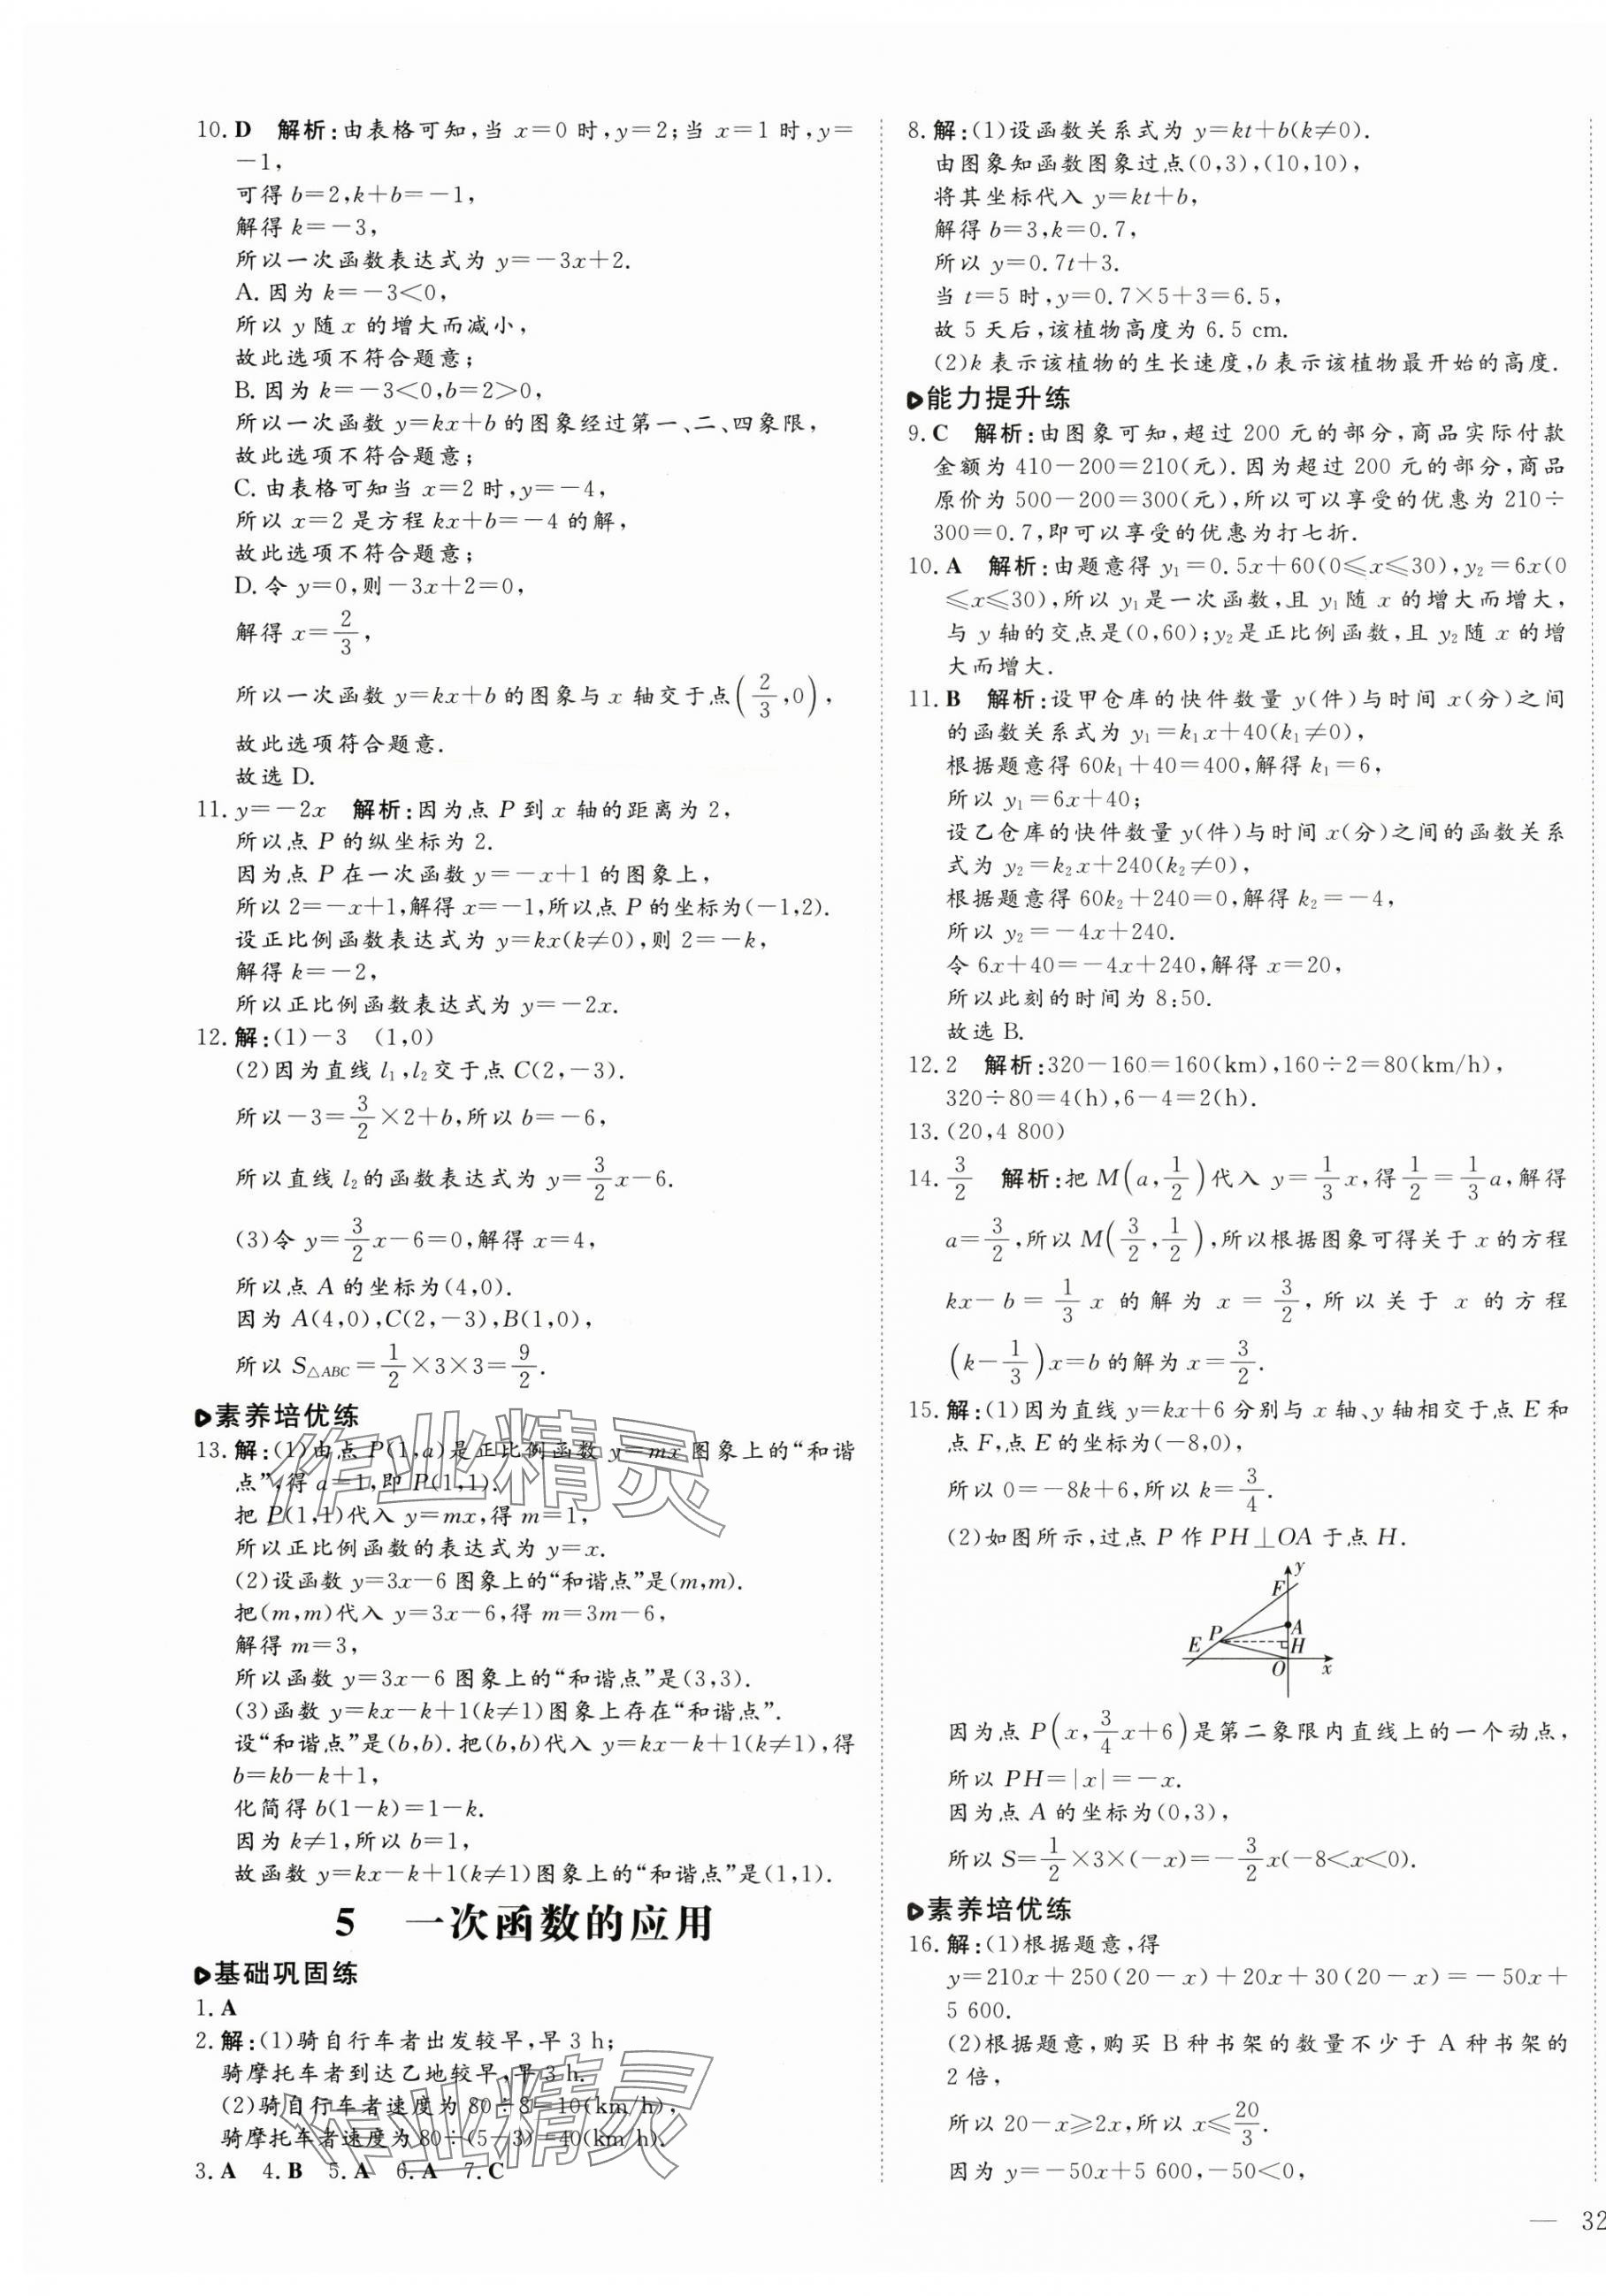 10. D 解析:由表格可知,当 x=0 时,y=2;当 x=1 时,y=
-1,
可得 b=2,k+b=-1,
解得 k=-3,
所以一次函数表达式为 y=-3x+2.
A. 因为 k=-3<0,
所以 y 随 x 的增大而减小,
故此选项不符合题意;
B. 因为 k=-3<0,b=2>0,
所以一次函数 y=kx+b 的图象经过第一、二、四象限,
故此选项不符合题意;
C. 由表格可知当 x=2 时,y=-4,
所以 x=2 是方程 kx+b=-4 的解,
故此选项不符合题意;
D. 令 y=0,则-3x+2=0,
解得 x=2/3,
所以一次函数 y=kx+b 的图象与 x 轴交于点(2/3,0),
故此选项符合题意.
故选 D.
11. y=-2x 解析:因为点 P 到 x 轴的距离为 2,
所以点 P 的纵坐标为 2.
因为点 P 在一次函数 y=-x+1 的图象上,
所以 2=-x+1,解得 x=-1,所以点 P 的坐标为(-1,2).
设正比例函数表达式为 y=kx(k≠0),则 2=-k,
解得 k=-2,
所以正比例函数表达式为 y=-2x.
12. 解:(1)-3 (1,0)
(2)因为直线 l₁,l₂交于点 C(2,-3).
所以-3=3/2×2+b,所以 b=-6,
所以直线 l₂的函数表达式为 y=3/2x-6.
(3)令 y=3/2x-6=0,解得 x=4,
所以点 A 的坐标为(4,0).
因为 A(4,0),C(2,-3),B(1,0),
所以 S△ABC=1/2×3×3=9/2.
素养培优练
13. 解:(1)由点 P(1,a)是正比例函数 y=mx 图象上的“和谐
点”,得 a=1,即 P(1,1).
把 P(1,1)代入 y=mx,得 m=1,
所以正比例函数的表达式为 y=x.
(2)设函数 y=3x-6 图象上的“和谐点”是(m,m).
把(m,m)代入 y=3x-6,得 m=3m-6,
解得 m=3,
所以函数 y=3x-6 图象上的“和谐点”是(3,3).
(3)函数 y=kx-k+1(k≠1)图象上存在“和谐点”.
设“和谐点”是(b,b). 把(b,b)代入 y=kx-k+1(k≠1),得
b=kb-k+1,
化简得 b(1-k)=1-k.
因为 k≠1,所以 b=1,
故函数 y=kx-k+1(k≠1)图象上的“和谐点”是(1,1).
5 一次函数的应用
基础巩固练
1. A
2. 解:(1)骑自行车者出发较早,早 3 h;
骑摩托车者到达乙地较早,早 3 h.
(2)骑自行车者速度为 80÷8=10(km/h),
骑摩托车者速度为 80÷(5-3)=40(km/h).
3. A 4. B 5. A 6. A 7. C
作业精灵
作业精灵
8. 解:(1)设函数关系式为 y=kt+b(k≠0).
由图象知函数图象过点(0,3),(10,10),
将其坐标代入 y=kt+b,
解得 b=3,k=0.7,
所以 y=0.7t+3.
当 t=5 时,y=0.7×5+3=6.5,
故 5 天后,该植物高度为 6.5 cm.
(2)k 表示该植物的生长速度,b 表示该植物最开始的高度.
能力提升练
9. C 解析:由图象可知,超过 200 元的部分,商品实际付款
金额为 410-200=210(元). 因为超过 200 元的部分,商品
原价为 500-200=300(元),所以可以享受的优惠为 210÷
300=0.7,即可以享受的优惠为打七折.
10. A 解析:由题意得 y₁=0.5x+60(0≤x≤30),y₂=6x(0
≤x≤30),所以 y₁是一次函数,且 y₁随 x 的增大而增大,
与 y 轴的交点是(0,60);y₂是正比例函数,且 y₂随 x 的增
大而增大.
11. B 解析:设甲仓库的快件数量 y(件)与时间 x(分)之间
的函数关系式为 y₁=k₁x+40(k₁≠0),
根据题意得 60k₁+40=400,解得 k₁=6,
所以 y₁=6x+40;
设乙仓库的快件数量 y(件)与时间 x(分)之间的函数关系
式为 y₂=k₂x+240(k₂≠0),
根据题意得 60k₂+240=0,解得 k₂=-4,
所以 y₂=-4x+240.
令 6x+40=-4x+240,解得 x=20,
所以此刻的时间为 8:50.
故选 B.
12. 2 解析:320-160=160(km),160÷2=80(km/h),
320÷80=4(h),6-4=2(h).
13. (20,4 800)
14. 3/2 解析:把 M(a,1/2)代入 y=1/3x,得1/2=1/3a,解得
a=3/2,所以 M(3/2,1/2),所以根据图象可得关于 x 的方程
kx-b=1/3x 的解为 x=3/2,所以关于 x 的方程
(k-1/3)x=b 的解为 x=3/2.
15. 解:(1)因为直线 y=kx+6 分别与 x 轴、y 轴相交于点 E 和
点 F,点 E 的坐标为(-8,0),
所以 0=-8k+6,所以 k=3/4.
(2)如图所示,过点 P 作 PH⊥OA 于点 H.
y
F
A
P
E
H
O
x
因为点 P(x,3/4x+6)是第二象限内直线上的一个动点,
所以 PH=|x|=-x.
因为点 A 的坐标为(0,3),
所以 S=1/2×3×(-x)=-3/2x(-8<x<0).
素养培优练
16. 解:(1)根据题意,得
y=210x+250(20-x)+20x+30(20-x)=-50x+
5 600.
(2)根据题意,购买 B 种书架的数量不少于 A 种书架的
2 倍,
所以 20-x≥2x,所以 x≤20/3.
因为 y=-50x+5 600,-50<0,
— 32